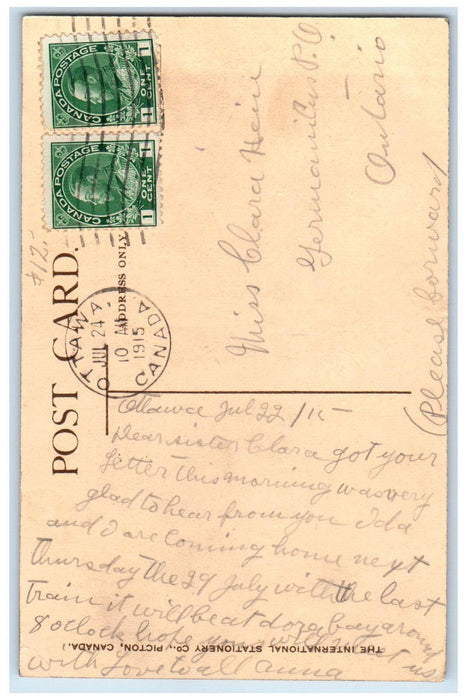 CANADA POSTAGE
ONE CENT
1 1
CANADA POSTAGE
ONE CENT
1 1
$12.-
POST CARD.
ADDRESS ONLY
OTTAWA,
JUL 24
10 AM
1915
CANADA.
Miss Clara Hein
Germanicus P.O.
Ontario
(Please Forward)
Ottawa July 22/15
Dear sister Clara got your
letter this morning was very
glad to hear from you Ida
and I are coming home next
thursday the 29 July with the last
train it will be at dora bay around
8 oclock hope you will meet us
with love to all anna
THE INTERNATIONAL STATIONERY CO., PICTON, CANADA.